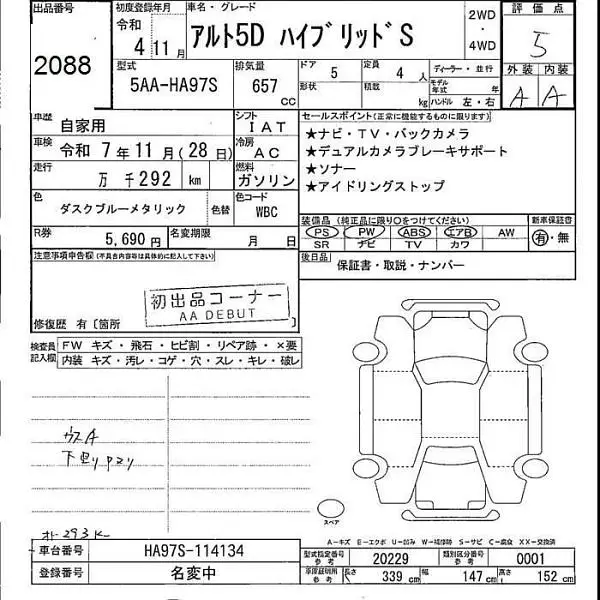 出品番号 初度登録年月 車名・グレード 2WD 評価点
令和 4 11月 アルト5D ハイブリッドS ・ 5
2088 4WD
型式 排気量 ドア 定員 ディーラー・並行 外装 内装
5AA-HA97S 657 CC 5 4 人 モデル年式 年 A A
形状 積載 kg ハンドル 左・右
車歴 自家用 シフト IAT セールスポイント(正常に機能するものに限ります)
車検 令和 7年11月(28日) 冷房 AC ★ナビ・TV・バックカメラ
★デュアルカメラブレーキサポート
走行 万 千292 km 燃料 ガソリン ★ソナー
★アイドリングストップ
色 ダスクブルーメタリック 色替 色コード WBC
装備品 (純正品に限り○をつけてください) 新車保証書
R券 5,690円 名変期限 月 日 PS PW ABS エアB AW 有・無
SR ナビ TV カワ
注意事項申告欄(不具合内容等は具体的に記入して下さい) 後日品 保証書・取説・ナンバー
初出品コーナー
AA DEBUT
修復歴 有〔箇所
検査員記入欄 FW キズ・飛石・ヒビ割・リペア跡・×要
内装 キズ・汚レ・コゲ・穴・スレ・キレ・破レ
ウスA
下廻りサビリ
スペア
オト293K
A-キズ E-エクボ U-凹み W-補修跡 S-サビ C-腐食 XX-交換済
車台番号 HA97S-114134 型式指定番号 参考 20229 類別区分番号 参考 0001
登録番号 名変中 車庫証明用 参考 長さ 339 cm 幅 147 cm 高さ 152 cm